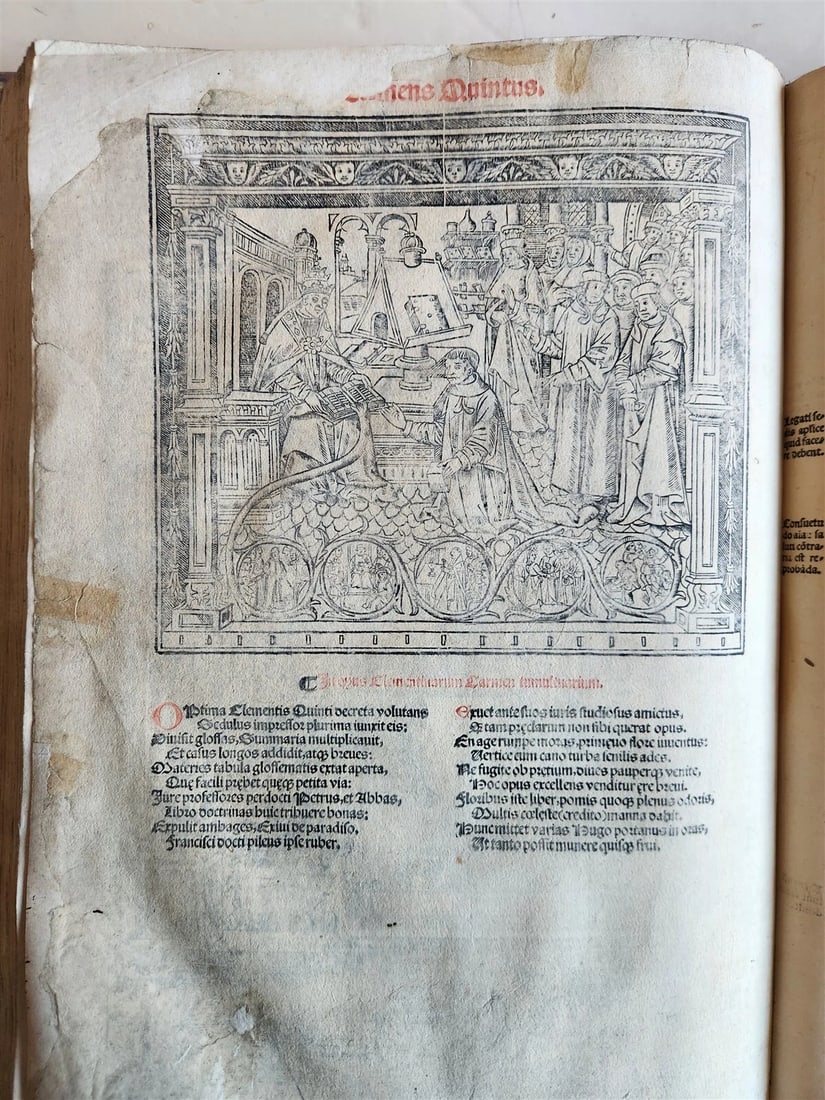 Clemens Quintus.
In opus Clementinarum Carmen tumultuarium.
OPtima Clementis Quinti decreta volutans
Sedulus impressor plurima iunxit eis:
Diuisit glossas, Summaria multiplicauit,
Et casus longos addidit, atq; breues:
Materies tabula glossematis extat aperta,
Que facili prębet quęq; petita via:
Jure professores perdocti Petrus, et Abbas,
Libro doctrinas huic tribuere bonas:
Expulit ambages, Exiui de paradiso,
Francisci docti pileus ipse ruber.
ante suos iuris studiosus amictus,
tam pręclarum non sibi querat opus.
En age rumpe moras, primęuo flore iuuentus:
Uertice cum cano turba senilis ades.
Ne fugite ob pretium, diues pauperq; venite,
Hoc opus excellens venditur ęre breui.
Floribus iste liber, pomis quoq; plenus odoris,
Multis cœleste (credito) manna dabit.
Hunc mittet varias Hugo portanus in oras,
Ut tanto possit munere quisq; frui.
Legati se-
dis aplice
quid face-
re debent.
Consuetu
do
cōtra-
ria est re-
probāda.